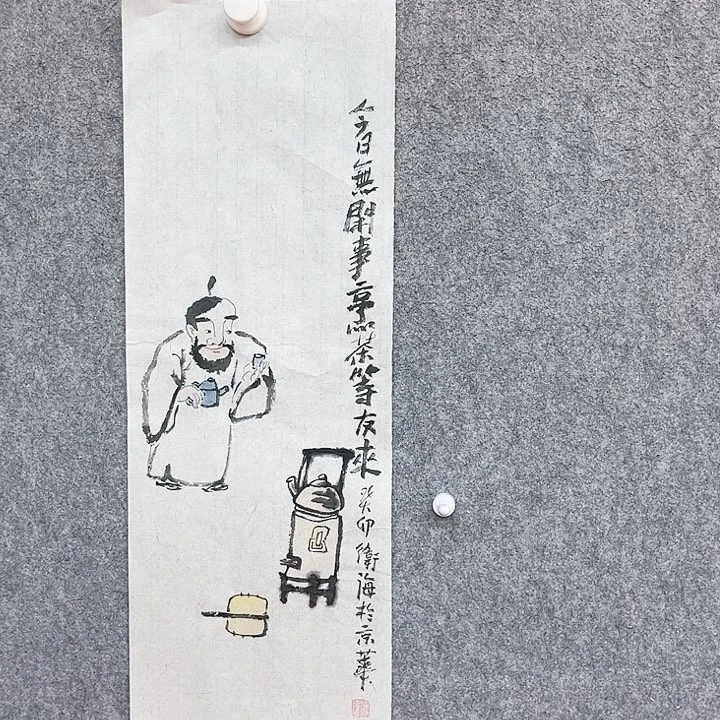 今日無閑事烹茶等友來
癸卯衛海於京華